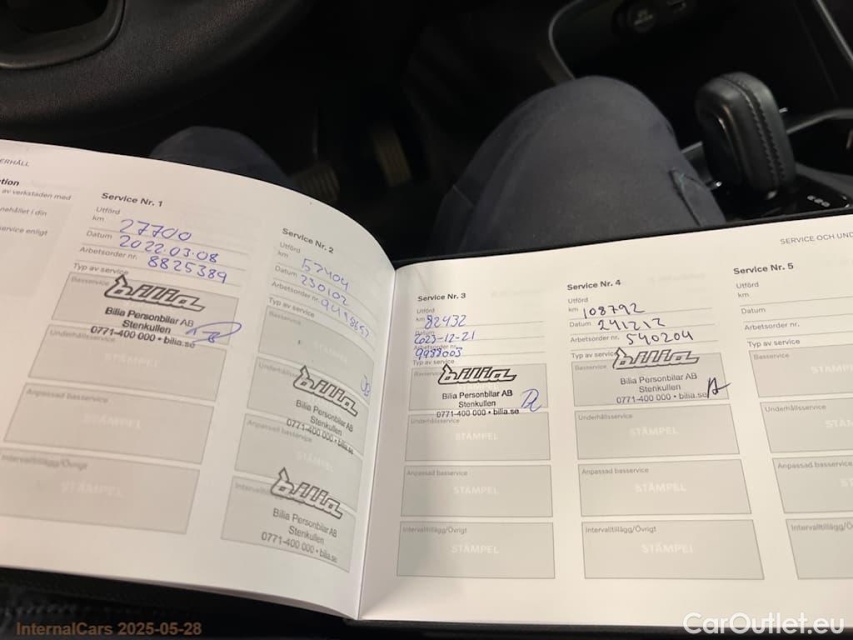 ERHÅLL
av verkstaden med
Service Nr. 1
Utförd
km 27700
Datum 2022.03.08
Arbetsorder nr. 8825389
Typ av service
Basservice
bilia
Bilia Personbilar AB
Stenkullen
0771-400 000 • bilia.se
Underhållsservice
STÄMPEL
Anpassad basservice
Intervalltillägg/Övrigt
STÄMPEL
Service Nr. 2
Utförd
km 57404
Datum 230102
Arbetsorder nr.
Typ av service
Basservice
bilia
Bilia Personbilar AB
Stenkullen
0771-400 000 • bilia.se
bilia
Bilia Personbilar AB
Stenkullen
0771-400 000 • bilia.se
SERVICE OCH UND
Service Nr. 3
Utförd
km 82432
2023-12-21
9999003
Typ av service
bilia
Bilia Personbilar AB
Stenkullen
0771-400 000 • bilia.se
Underhållsservice
STÄMPEL
Anpassad basservice
STÄMPEL
Intervalltillägg/Övrigt
STÄMPEL
Service Nr. 4
Utförd
km 108792
Datum 241212
Arbetsorder nr. 540204
Typ av service
Basservice
bilia
Bilia Personbilar AB
Stenkullen
0771-400 000 • bilia.se
Underhållsservice
STÄMPEL
Anpassad basservice
STÄMPEL
Intervalltillägg/Övrigt
STÄMPEL
Service Nr. 5
Utförd
km
Datum
Arbetsorder nr.
Typ av service
Basservice
Underhållsservice
Anpassad basservice
InternalCars 2025-05-28
CarOutlet.eu